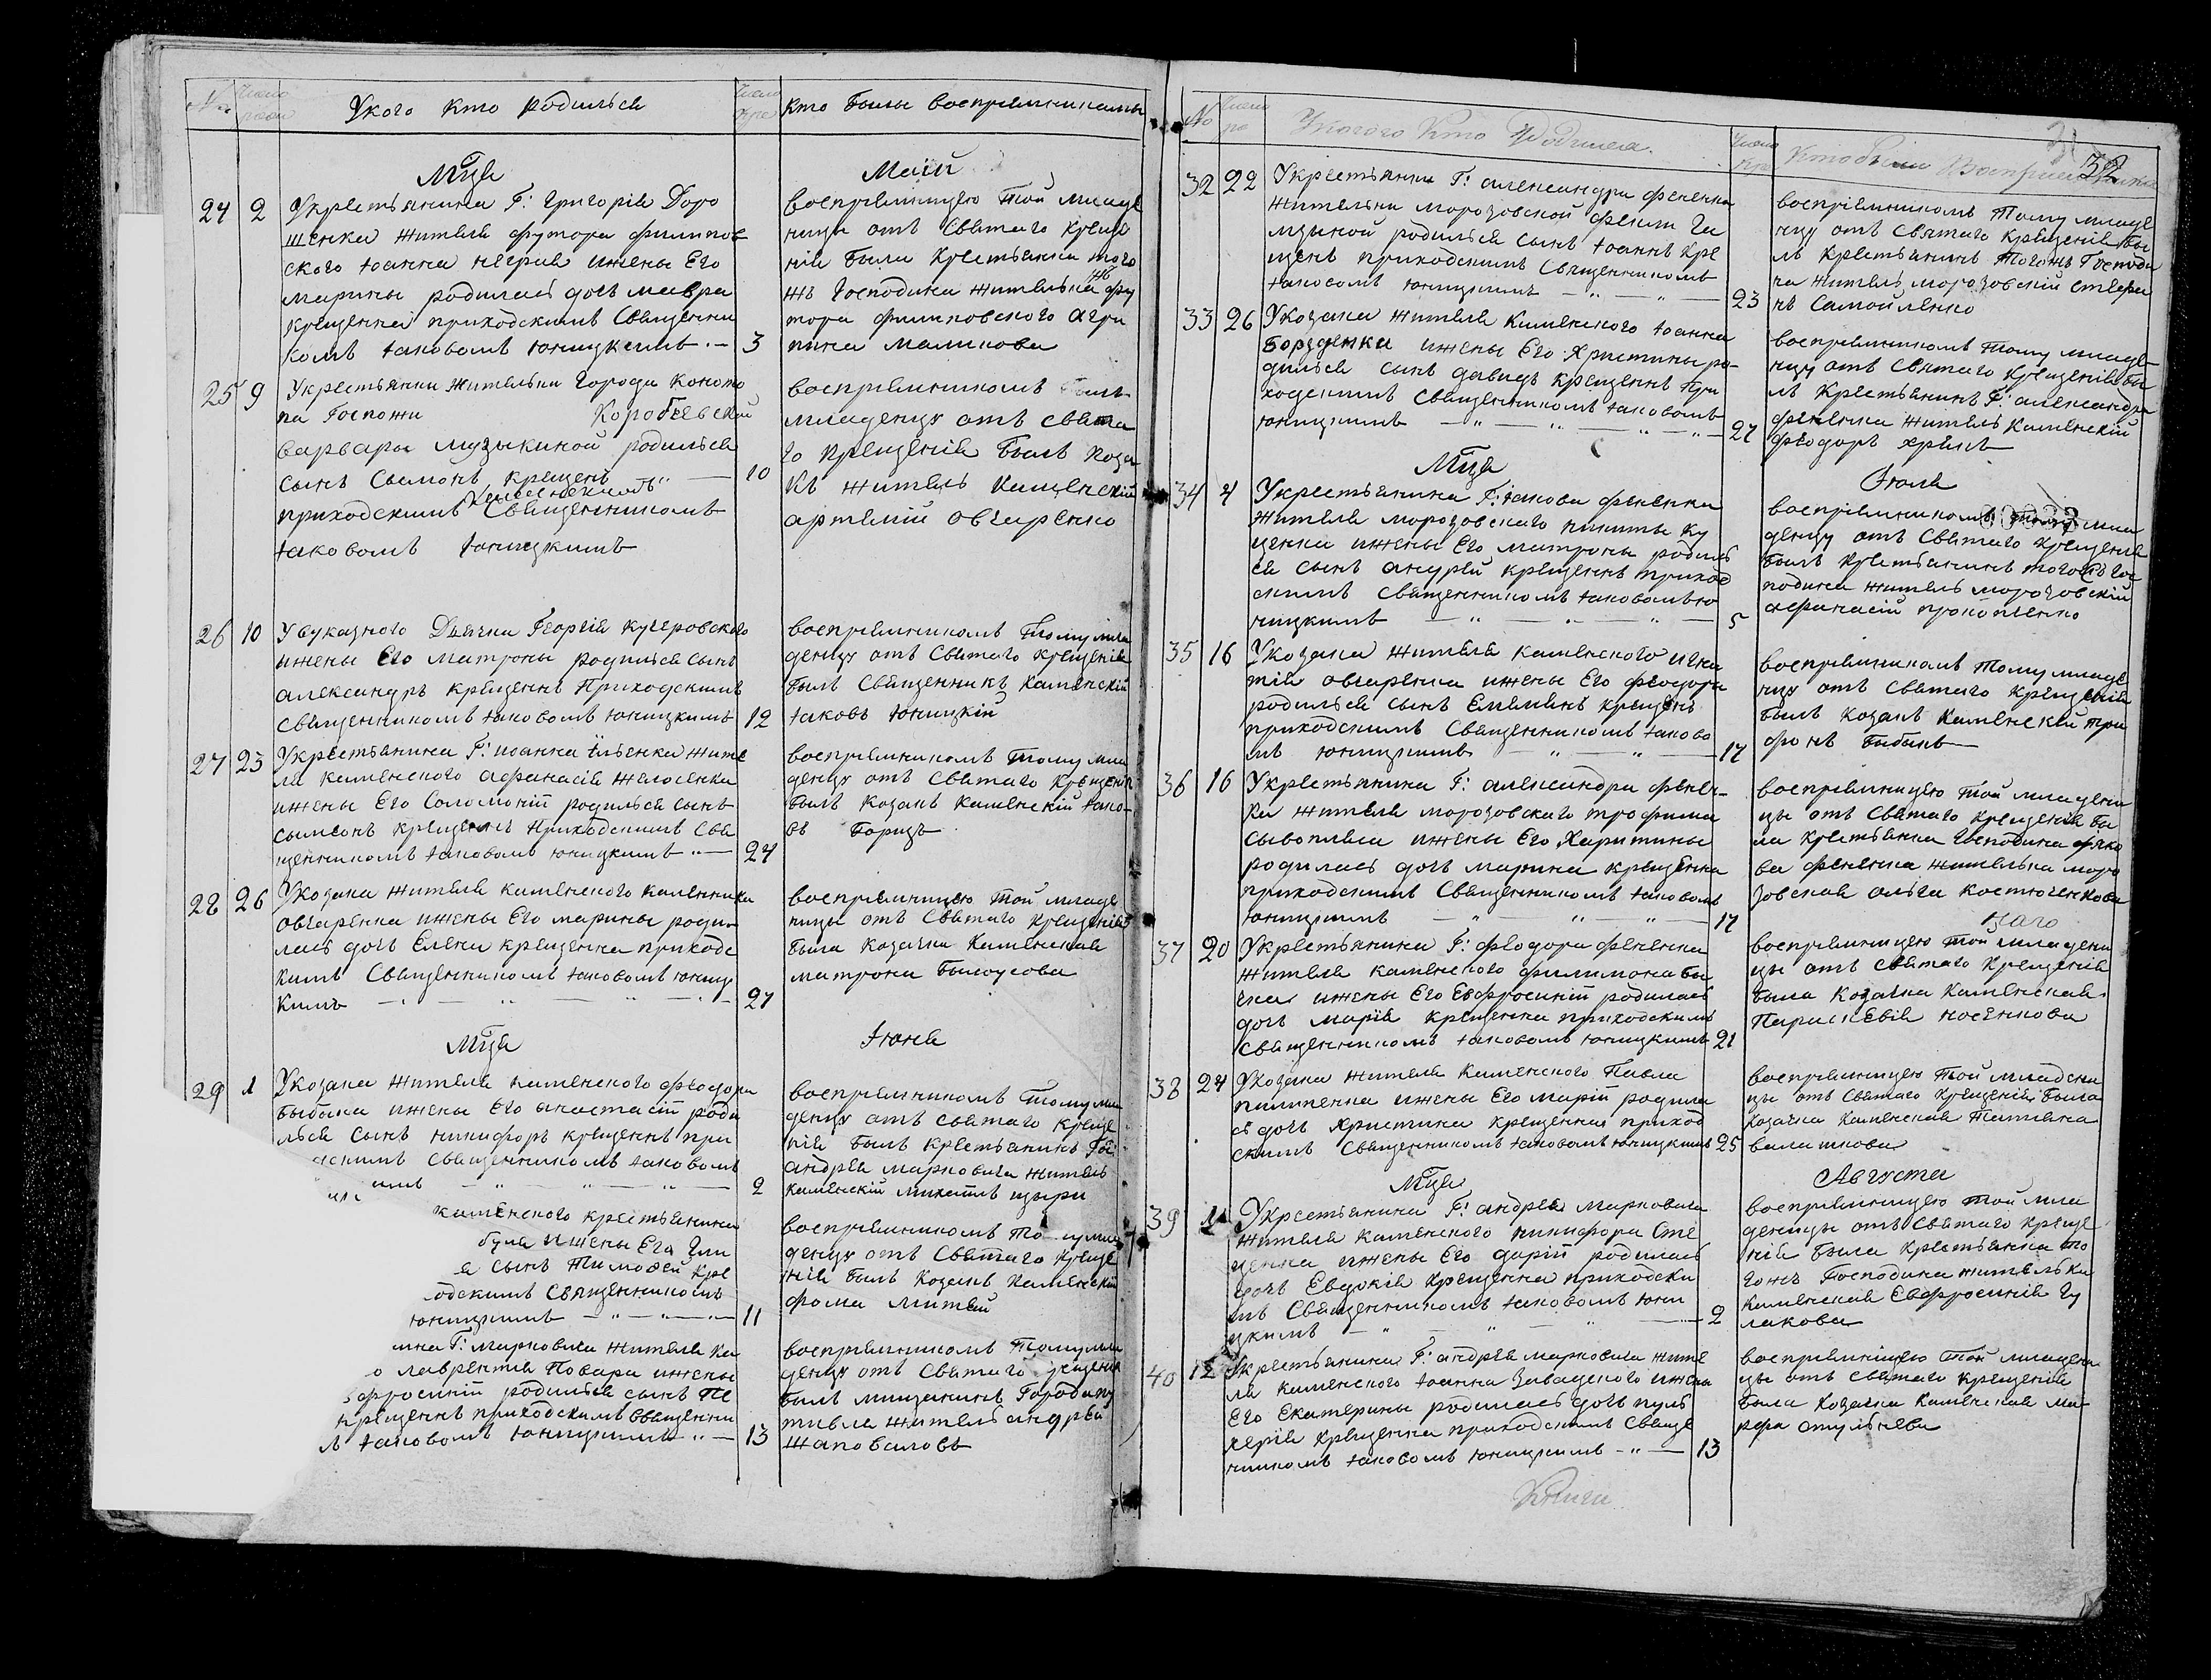 № Число рожд Укого кто родился Число кре кто были восприемниками
Мца Маий
24 2 Укрестьянина Г: Григорія Доро
шенка жителя футора филипов
ского Іоанна ижены Его
марины родилась дочь мавра
крещенна приходскимъ Священни
комъ Іаковомъ Юницкимъ 3
восприемницею той младе
ницы отъ Святаго Креще
нія была Крестьянка того
жъ Господина жителька фу
тора филиповского агри
пина маликова
25 9 Укрестьянки жительки города Коното
па Госпожи Коробьевской
варвары музыкиной родился
сынъ Симонъ крещенъ 10
приходскимъ Каменскимъ Священникомъ
Іаковомъ Юницкимъ
восприемникомъ
младенцу отъ свята
го крещенія былъ коза
къ житель каменскій
артемій овчаренко
26 10 Ууказного Дьячка Георгія кучеровского
ижены Его матроны родился сынъ
александръ крещенъ Приходскимъ
Священникомъ Іаковомъ Юницкимъ 12
восприемникомъ тому мла
денцу отъ Святаго крещенія
былъ Священникъ Каменскій
Іаковъ Юницкій
27 23 Укрестьянина Г: иоанна ильенка жите
ля каменского афанасія
ижены Его Соломоніи родился сынъ
сымеонъ крещенъ Приходскимъ Свя
щенникомъ Іаковомъ Юницкимъ 24
восприемникомъ тому мла
денцу отъ Святаго Крещенія
былъ Козакъ Каменскій Іако
въ
28 26 Укозака жителя каменского каленника
овчаренка ижены Его марины роди
лась дочь Елена крещенна приходс
кимъ Священникомъ Іаковомъ Юниц
кимъ 27
восприемницею той младе
ницы отъ Святаго Крещенія
была Козачка Каменская
матрона Белоусова
Мца Іюня
29 1 Укозака жителя каменского феодора
бибика ижены Его анастасіи роди
лься сынъ никифоръ крещеннъ при
скимъ Священникомъ Іаковомъ
2
восприемникомъ тому мла
денцу отъ святаго Креще
нія былъ крестьянинъ Г:
андрея марковича житель
каменскій михаилъ цыри
каменского крестьянина
ижены Его
сынъ Тимофей кре
одскимъ Священникомъ
Юницкимъ 11
восприемникомъ
денцу отъ Святаго Креще
нія былъ Козакъ каменскій
фома
Г: марковича жителя ка
лаврентія Повара ижены
родился сынъ Пе
крещеннъ приходскимъ Священни
Іаковомъ Юницкимъ 13
восприемникомъ тому мла
денцу отъ Святаго
былъ мищанинъ Города пу
тивля житель андрей
Шаповаловъ
32
№ Укогого Кто Родился Кто были Восприемники
32 22 Укрестьянки Г: александра фененка
жительки морозовской
родился сынъ Іоаннъ кре
щенъ приходскимъ Священникомъ
Іаковомъ Юницкимъ 23
восприемникомъ тому младе
нцу отъ Святаго крещенія бы
лъ крестьянинъ того жъ Господи
на житель морозовскій
Самойленко
33 26 Укозака жителя Каменского Іоанна
ижены Его Христины ро
дился сынъ давидъ крещеннъ при
ходскимъ Священникомъ Іаковомъ
Юницкимъ 27
восприемникомъ тому младе
нцу отъ Святаго Крещенія бы
лъ Крестьянинъ Г: александра
фененка житель Каменскій
феодоръ хренъ
Мца Іюля
34 4 Укрестьянина Г: Іакова фененки
жителя морозовского никиты ку
ценка ижены Его матроны родил
ся сынъ андрей крещеннъ приход
скимъ Священникомъ Іаковомъ Ю
ницкимъ 5
восприемникомъ тому мла
денцу отъ Святаго крещенія
былъ крестьянинъ того Гос
подина житель морозовскій
афанасій прокопенко
35 16 Укозака жителя каменского игна
тія овчаренка ижены Его феодора
родился сынъ Емелянъ крещенъ
приходскимъ Священникомъ Іаково
мъ Юницкимъ 17
восприемникомъ тому младе
нцу отъ Святаго Крещенія
былъ Козакъ Каменскій три
фонъ бибикъ
36 16 Укрестьянина Г: александра фенен
ка жителя морозовского трофима
ижены Его Харитины
родилась дочь марина крещенна
приходскимъ Священникомъ Іаковомъ
Юницкимъ 17
восприемницею той младени
цы отъ Святаго Крещенія бы
ла крестьянка Господина Яко
ва фененка жителька моро
зовская ольга костюченкова
37 20 Укрестьянина Г: феодора фененка
жителя каменского филимона
ижены Его Евфросиніи родилась
дочь марія крещенна приходскимъ
Священникомъ Іаковомъ Юницкимъ 21
восприемницею той младени
цы отъ Святаго Крещенія
была Козачка Каменская
Параскевія носенкова
38 24 Укозака жителя Каменского Павла
пилипенка ижены Его Маріи родила
сь дочь Христина крещенна приход
скимъ Священникомъ Іаковомъ Юницкимъ 25
восприемницею той младени
цы отъ Святаго Крещенія была
козачка Каменская Татьяна
Мца Августа
39 Укрестьянина Г: андрея марковича
жителя каменского никифора Сте
ценка ижены Его даріи родилась
дочь Евдокія крещенна приходски
мъ Священникомъ Іаковомъ Юни
цкимъ 2
восприемницею той мла
деницы отъ Святаго креще
нія была Крестьянка то
гожъ Господина жителька
Каменская Евфросинія Гу
лакова
40 12 Укрестьянина Г: андрея марковича жите
ля каменского Іоанна Завадского ижены
Его Екатерины родилась дочь пуль
херія крещенна приходскимъ Свяще
нникомъ Іаковомъ Юницкимъ 13
восприемницею той младени
цы отъ Святаго Крещенія
была Козачка Каменская ма
рфа
Книги